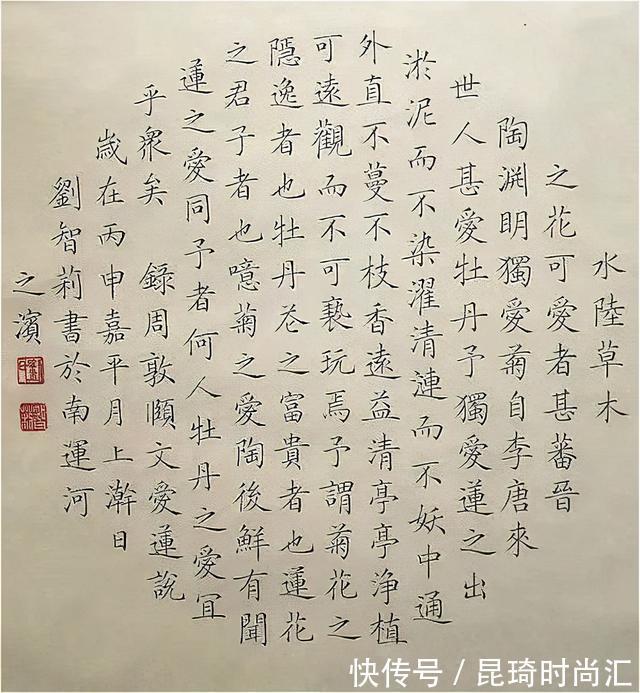 水陸草木
之花可愛者甚蕃晉
陶渕明獨愛菊自李唐來
世人甚愛牡丹予獨愛蓮之出
淤泥而不染濯清漣而不妖中通
外直不蔓不枝香遠益清亭亭浄植
可遠觀而不可褻玩焉予謂菊花之
隱逸者也牡丹花之富貴者也蓮花
之君子者也噫菊之愛陶後鮮有聞
蓮之愛同予者何人牡丹之愛冝
乎衆矣 錄周敦頤文愛蓮說
歲在丙申嘉平月上澣日
劉智莉書於南運河
之濱
快传号 / 昆琦时尚汇